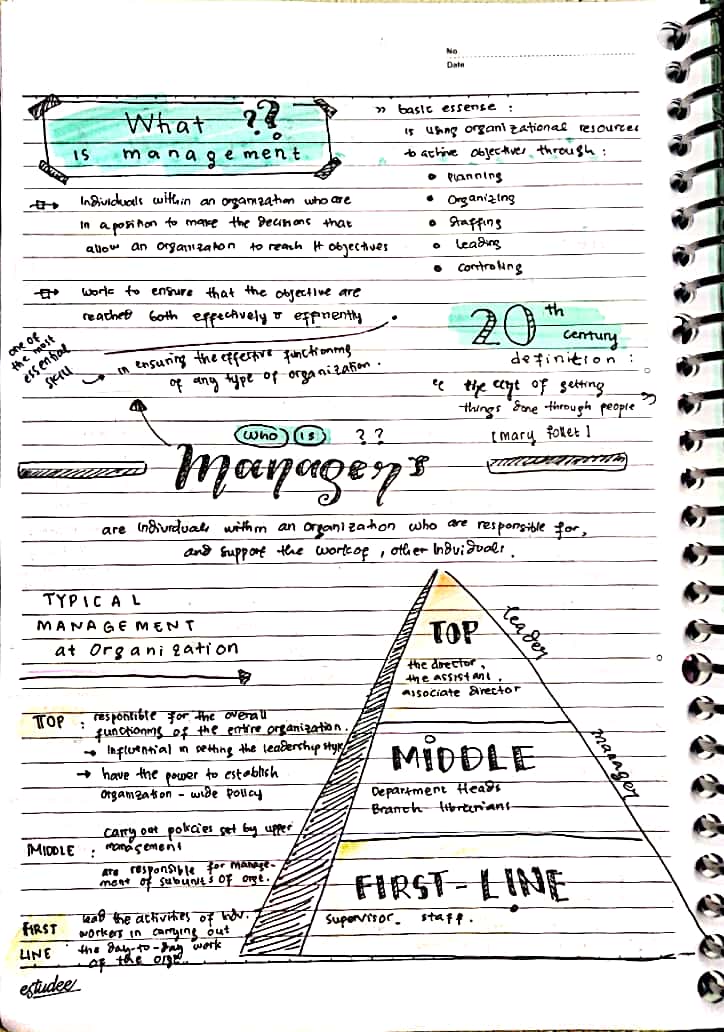 No
Date
What ??
is management
→ Individuals within an organization who are
in a position to make the decisions that
allow an organization to reach it objectives
→ work to ensure that the objective are
reached both effectively & efficiently
one of
the most
essential
skill
→ in ensuring the effective functioning
of any type of organization.
>> basic essense :
is using organizational resources
to active objectives through :
• Planning
• Organizing
• Staffing
• Leading
• Controling
20th
century
definition :
"the art of getting
things done through people"
[mary follet]
who is ??
Managers
are individuals within an organization who are responsible for,
and support the work of, other individuals.
TYPICAL
MANAGEMENT
at Organization
TOP : responsible for the overall
functioning of the entire organization.
→ Influential in setting the leadership style
→ have the power to establish
organization - wide policy
MIDDLE : carry out policies set by upper
management
are responsible for manage-
ment of subunits of orgz.
FIRST
LINE
lead the activities of indv.
workers in carrying out
the day-to-day work
of the orgz
TOP
the director,
the assistant,
associate director
MIDDLE
Department Heads
Branch librarians
FIRST-LINE
supervisor. staff.
leader
manager
estudee